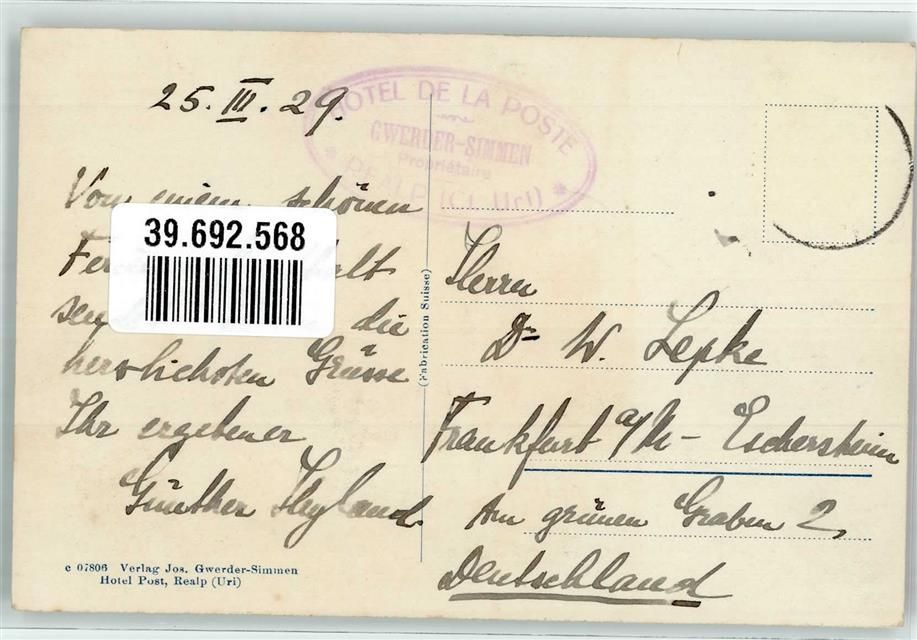 25. III. 29.
HOTEL DE LA POSTE
GWERDER-SIMMEN
Propriétaire
* REALP (Ct. Uri) *
Von einem schönen
39.692.568
die
herzlichsten Grüsse
Ihr ergebener
Günther Heyland
c 07806 Verlag Jos. Gwerder-Simmen
Hotel Post, Realp (Uri)
(Fabrication Suisse)
Herrn
Dr W. Lepke
Frankfurt a/M - Eschersheim
Am grünen Graben 2,
Deutschland